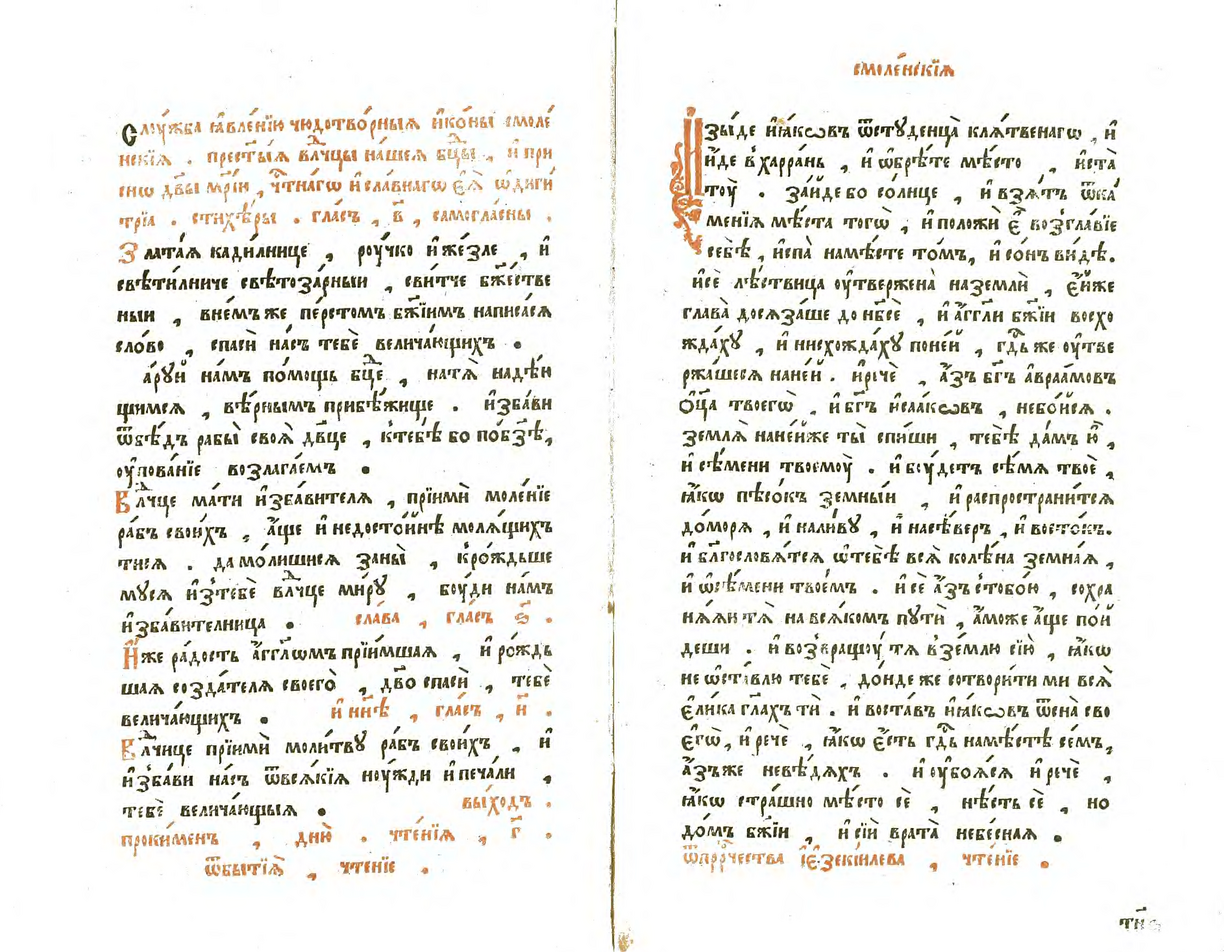 слꙋ́жба ꙗ҆вле́нїю чюдотво́рныѧ и҆ко́ны смоле́
нскїѧ . прест҃ы́ѧ влⷣчцы на́шеѧ бц҃ы , и҆ при
сно дв҃ы мр҃і́и , чⷭ҇тнагѡ и҆ сла́внагѡ є҆ѧ̀ ѡ҆диги́
трїа . стихѣ́ры . гла́съ , в҃ , самогла́сны .
Злата́ѧ кади́лнице , рꙋ́чко и҆ же́зле , и҆
свѣти́лниче свѣтоза́рныи , сви́тче бж҃е́стве
ныи , вне́мъже пе́рстомъ бж҃їимъ написа́сѧ
сло́во , спасѝ на́съ тебѐ велича́ющихъ .
да́рꙋй на́мъ по́мощь бцⷣе , натѧ̀ надѣ́ю
щимсѧ , вѣ́рнымъ прибѣ́жище . и҆зба́ви
ѿбѣ́дъ рабы̀ своѧ̀ дв҃це , ктебѣ́ бо по́бз҃ѣ,
оу҆пова́нїе возлага́емъ .
Влⷣчце ма́ти и҆зба́вителѧ , прїимѝ моле́нїе
ра́бъ свои́хъ , а҆́ще и҆ недосто́инѣ молѧ́щихъ
тисѧ . да мо́лишисѧ заны̀ , кро́ждьше
мꙋсѧ и҆зтебѐ влⷣчце ми́рꙋ , бꙋ́ди на́мъ
и҆зба́вителница . сла́ва , гла́съ ѕ҃ .
И҆́же ра́дость а҆́гг҃лѡмъ прїи́мшаѧ , и҆ ро́ждь
шаѧ созда́телѧ своего̀ , дв҃о спасѝ , тебѐ
велича́ющихъ . и҆ нн҃ѣ , гла́съ , и҃ .
Влⷣчице прїимѝ моли́твꙋ ра́бъ свои́хъ , и҆
и҆зба́ви на́съ ѿвсѧ́кїѧ нꙋ́жди и҆ печа́ли ,
тебѐ велича́ющыѧ . вы́ходъ .
проки́менъ , дню̀ . чте́нїѧ , г҃ .
ѿбытїѧ̀ , чте́нїе .
смоле́нскїѧ
И҆зы́де и҆ꙗ́ковъ ѿстꙋденца̀ клѧ́твенагѡ , и҆
и҆́де вхарра́нь , и҆ ѡ҆брѣ́те мѣ́сто , и҆ста̀
тꙋ̀ . за́йде бо со́лнце , и҆ взѧ́тъ ѿка́
менїѧ мѣ́ста тогѡ̀ , и҆ положѝ є҆̀ возгла́вїе
себѣ̀ , и҆спа̀ намѣ́сте то́мъ, и҆ со́нъ ви́дѣ.
и҆сѐ лѣ́ствица оу҆твержена̀ наземлѝ , є҆́йже
глава̀ досѧза́ше до нб҃сѐ , и҆ а҆́гг҃ли бж҃їи восхо
жда́хꙋ , и҆ нисхожда́хꙋ поне́й , гдⷭ҇ь же оу҆тве
ржа́шесѧ нане́й . и҆речѐ , а҆́зъ бг҃ъ а҆враа́мовъ
ѻц҃а твоегѡ̀ , и҆ бг҃ъ и҆саа́ковъ , небо́йсѧ .
землѧ̀ нане́йже ты̀ спи́ши , тебѣ̀ да́мъ ю҆̀ ,
и҆ сѣ́мени твоемꙋ̀ . и҆ бꙋ́детъ сѣ́мѧ твоѐ ,
ꙗ҆́кѡ пѣсо́къ земны́и , и҆ распространи́тсѧ
до́морѧ , и҆ нали́вꙋ , и҆ насѣ́веръ , и҆ восто́къ.
и҆ блг҃ословѧ́тсѧ ѡ҆тебѣ̀ всѧ̀ колѣ́на земна́ѧ ,
и҆ ѡ҆сѣ́мени твое́мъ . и҆ сѐ а҆́зъ стобо́ю , сохра
нѧ́ѧи тѧ̀ на всѧ́комъ пꙋтѝ , а҆́може а҆́ще по́й
деши . и҆ возвращꙋ́ тѧ вземлю сїю̀ , ꙗ҆́кѡ
не ѡ҆ста́влю тебѐ , до́нде же сотвори́ти ми всѧ̀
є҆ли́ка гл҃ахъ тѝ . и҆ воста́въ и҆ꙗ́ковъ ѿсна̀ сво
є҆гѡ̀ , и҆ речѐ , ꙗ҆́кѡ є҆́сть гдⷭ҇ь намѣ́стѣ се́мъ ,
а҆́зъже невѣ́дѧхъ . и҆ оу҆боѧ́сѧ и҆ речѐ ,
ꙗ҆́кѡ стра́шно мѣ́сто сѐ , нѣ́сть сѐ , но
до́мъ бж҃їи , и҆ сїѝ врата̀ небе́снаѧ .
ѿпрⷪ҇ро́чества і҆є҆зекі́илева , чте́нїе .